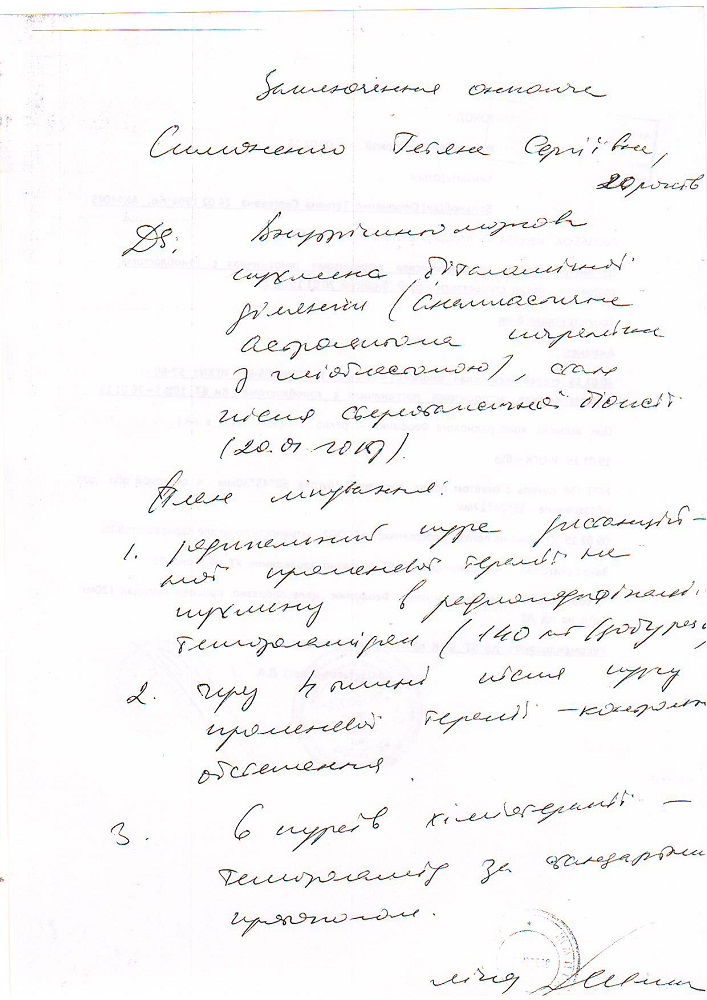 Заключення онколога
Симоненко Тетяна Сергіївна,
20 років
DS: Внутрішньомозкова
пухлина біталамічної
ділянки (анапластична
астроцитома
з гліобластомою), стан
після стереотаксичної біопсії
(20.01
План лікування:
1. радикальний курс дистанцій-
ної променевої терапії на
пухлину в радіомодифікації
темодаліром (140 мг
2. через 4 тижні після курсу
променевої терапії – контрольне
обстеження
3. 6 курсів хіміотерапії –
за стандартним
протоколом.